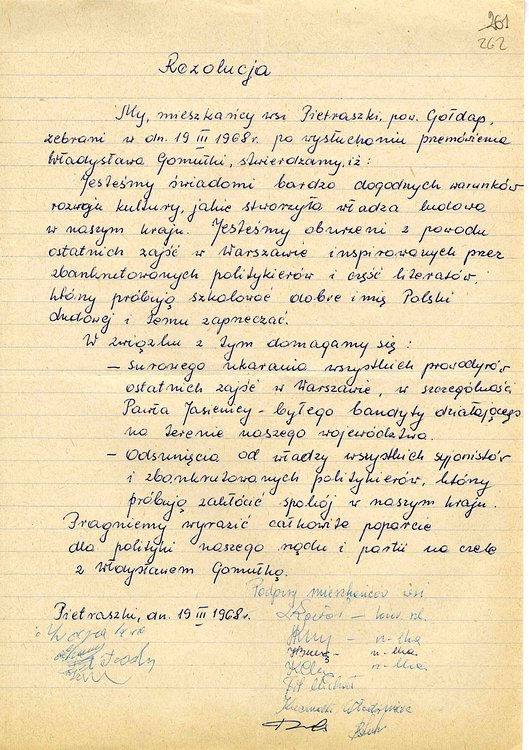 261
262
Rezolucja
My, mieszkańcy wsi Pietraszki, pow. Gołdap,
zebrani w dn. 19 III 1968 r. po wysłuchaniu przemówienia
Władysława Gomułki, stwierdzamy, iż:
Jesteśmy świadomi bardzo dogodnych warunków
rozwoju kultury, jakie stworzyła władza ludowa
w naszym kraju. Jesteśmy oburzeni z powodu
ostatnich zajść w Warszawie inspirowanych przez
zbankrutowanych politykierów i część literatów,
którzy próbują szkalować dobre imię Polski
Ludowej i temu zaprzeczać.
W związku z tym domagamy się:
– Surowego ukarania wszystkich prowodyrów
ostatnich zajść w Warszawie, w szczególności
Pawła Jasienicy – byłego bandyty działającego
na terenie naszego województwa.
– Odsunięcia od władzy wszystkich syjonistów
i zbankrutowanych politykierów, którzy
próbują zakłócić spokój w naszym kraju.
Pragniemy wyrazić całkowite poparcie
dla polityki naszego rządu i partii na czele
z Władysławem Gomułką.
Podpisy mieszkańców wsi
Pietraszki, dn. 19 III 1968 r.
– kier. szk.
– n-lka
– n-lka
– n-lka